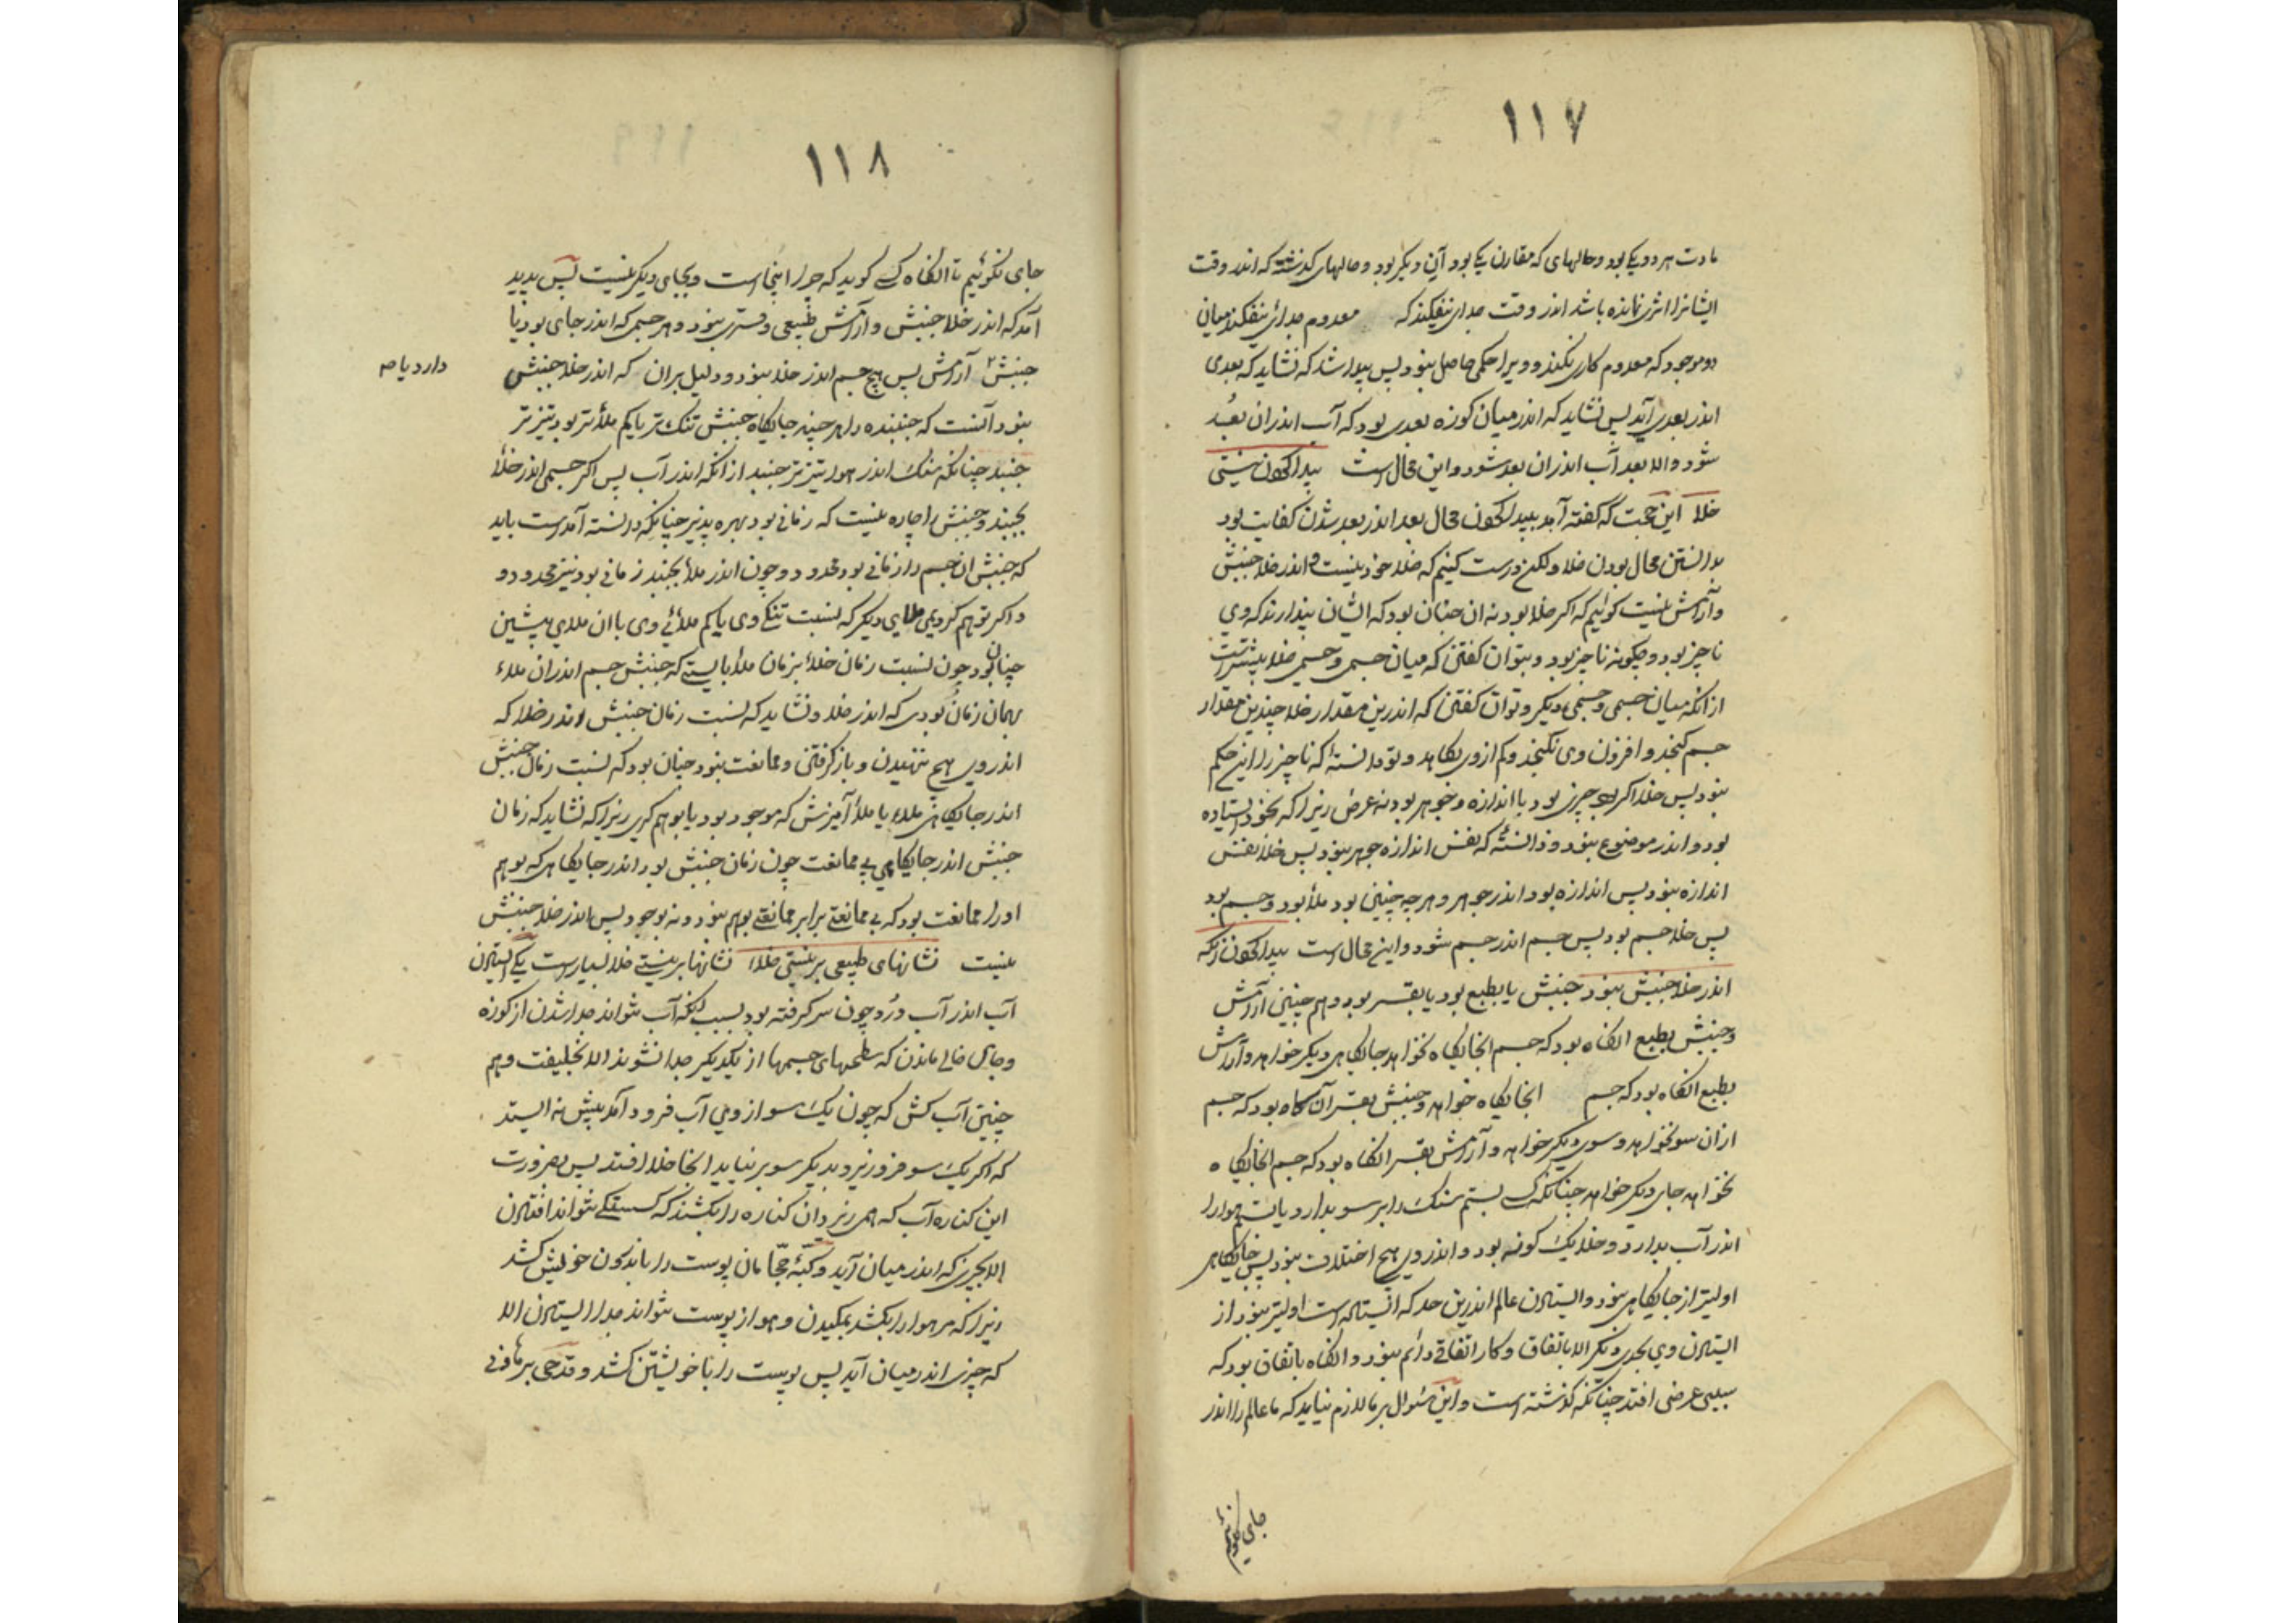 ۱۱۷
مادت هر دو یکی بود و حالهای که مقارن یکی بود آن دیگر بود و حالهای گذشته که اندر وقت
ایشانرا اثری نمانده باشد اندر وقت جدای نیفکند که معدوم جدائی نیفکند میان
دو موجود که معدوم کاری نکند و ویرا حکمی حاصل نبود پس پیدا شد که نشاید که بعدی
اندر بعدی آید پس نشاید که اندر میان کوزه بعدی بود که آب اندران بعد
شود والا بعد آب اندران بعد شود و این محال است پیدا کردن نیستی
خلأ این حجت که گفته آمد پیدا کردن محال بعد اندر بعد شدن کفایت بود
بدانستن محال بودن خلا ولکن درست کنیم که خلا خود نیست و اندر خلا جنبش
و آرامش نیست گوئیم که اگر خلا بود نه ان چنان بود که ایشان پندارند که وی
ناچیز بود و چگونه ناچیز بود و بتوان گفتن که میان جسمی و جسمی خلا بیشتر است
از آنکه میان جسمی و جسمی دیگر و توان گفتن که اندرین مقدار خلا چندین مقدار
جسم گنجد و افزون وی نگنجد و کم ازوی بکاهد و تو دانستهٔ که ناچیز را این حکم
نبود پس خلا اگر بود چیزی بود با اندازه و جوهر بود نه عرض زیرا که بخود ایستاده
بود و اندر موضوع نبود و دانستهٔ که نفس اندازه جوهر نبود پس خلا نفس
اندازه نبود پس اندازه بود اندر جوهر و هرچه چنین بود ملأ بود و جسم بود
پس خلا جسم بود پس جسم اندر جسم شود و این محال است پیدا کردن آنکه
اندر خلا جنبش نبود جنبش یا بطبع بود یا بقسر بود و هم چنین آرامش
و جنبش بطبع انگاه بود که جسم انجایگاه نخواهد جایگاهی دیگر خواهد و آرامش
بطبع انگاه بود که جسم انجایگاه خواهد و جنبش بقسر آن گاه بود که جسم
ازان سو نخواهد و سوی دیگر خواهد و آرامش بقسر انگاه بود که جسم انجایگاه
نخواهد جای دیگر خواهد چنانکه کسی بستم سنگ را بر سو بدارد یا هوا را
اندر آب بدارد و خلا یک گونه بود و اندروی هیچ اختلاف نبود پس جایگاهی
اولیتر از جایگاهی نبود و ایستادن عالم اندرین حد که ایستاده است اولیتر نبود از
ایستادن وی بحدی دیگر الا باتفاق و کار اتفاقی دائم نبود و انگاه باتفاق بود که
سببی عرضی افتد چنانکه گذشته است و این سئوال بر ما لازم نیاید که ما عالم را اندر
جای نگوئیم
۱۱۸
جای نگوئیم تا انگاه کسی گوید که چرا اینجا است و بجای دیگر نیست پس پدید
آمد که اندر خلا جنبش و آرامش طبیعی و قسری نبود و هر جسم که اندر جای بود یا
جنبش آرامش پس هیچ جسم اندر خلا نبود و دلیل بران که اندر خلا جنبش
دارد یا صه
نبود آنست که جنبنده را هر چند جایگاه جنبش تنک تر یا کم ملأتر بود تیزتر
جنبد چنانکه سنگ اندر هوا تیزتر جنبد از آنکه اندر آب پس اگر جسمی اندر خلأ
بجنبد و جنبش را چاره نیست که زمانی بود بهره پذیر چنانکه دانسته آمده است باید
که جنبش ان جسم را زمانی بود محدود و چون اندر ملأ بجنبد زمانی بود نیز محدود و
و اگر توهم کردیمی ملایی دیگر که نسبت تنکی وی یا کم ملائی وی با ان ملای پیشین
چنان بود چون نسبت زمان خلأ بزمان ملأ بایستی که جنبش جسم اندران ملاء
بهمان زمان بودی که اندر خلا و نشاید که نسبت زمان جنبش اندر خلا که
اندروی هیچ تنهیدن و بازگرفتن و ممانعت نبود چنان بود که نسبت زمان جنبش
اندر جایگاهی ملاء یا ملأ آمیزش که موجود بود یا بوهم گیری زیرا که نشاید که زمان
جنبش اندر جایگاهی بی ممانعت چون زمان جنبش بود اندر جایگاهی که بوهم
اورا ممانعت بود که بی ممانعتی برابر ممانعتی بوهم نبود و نه بوجود پس اندر خلا جنبش
نیست نشانهای طبیعی بر نیستی خلاا نشانها بر نیستی خلا بسیار است یکی ایستادن
آب اندر آب دزد چون سر گرفته بود بسبب انکه آب نتواند جدا شدن از کوزه
و جای خالی ماندن که سطحهای جسمها از یکدیگر جدا نشوند الا بخلیفت و هم
چنین آب کش که چون یک سو از وی آب فرود آمد بیش نه ایستد
که اگر یک سو فرو ریزد و بدیگر سو بر نیاید انجا خلا افتد پس بضرورت
این کناره آب که همی ریزد ان کناره را بکشد که گسستگی نتواند افتادن
الا بچیزی که اندر میان آید و کبهٔ حجامان پوست را باندرون خویش کشد
زیرا که مر هوا را بکشد بمکیدن و هوا از پوست نتواند جدا ایستادن الا
که چیزی اندر میان آید پس پوست را با خویشتن کشد و قدحی بر هاونی